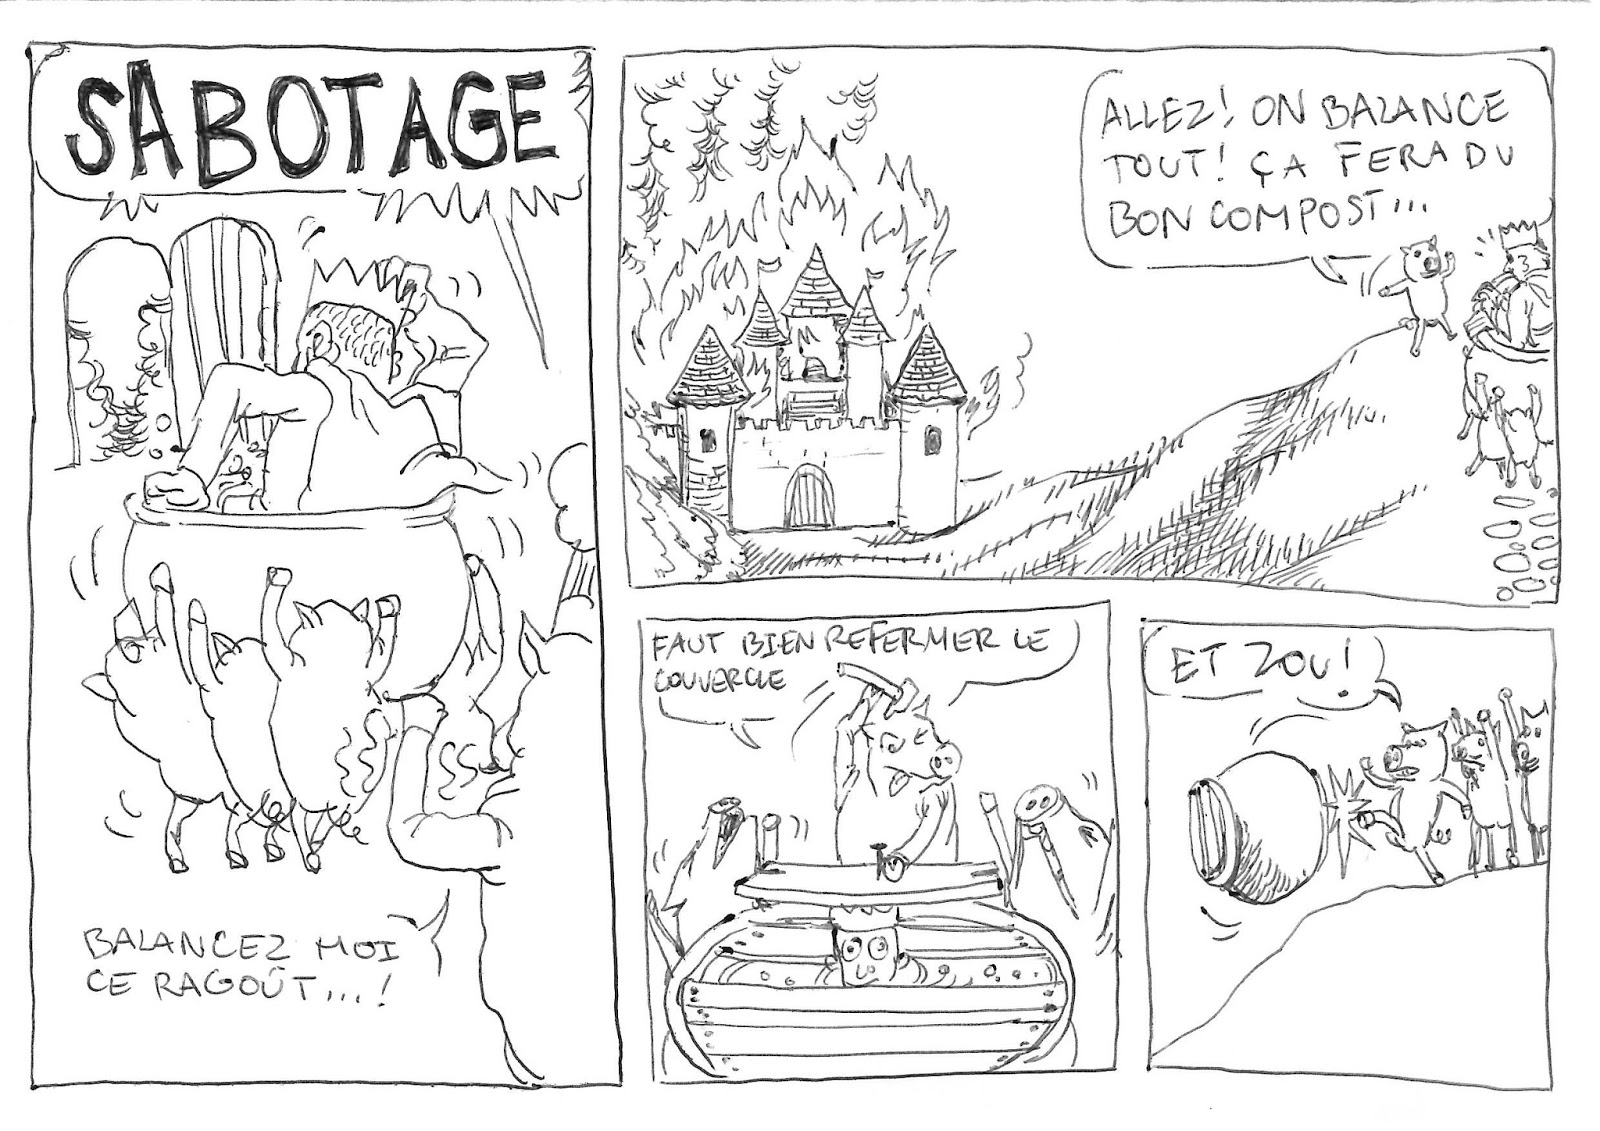 SABOTAGE
BALANCEZ MOI
CE RAGOÛT...!
ALLEZ! ON BALANCE
TOUT! ÇA FERA DU
BON COMPOST...
FAUT BIEN REFERMER LE
COUVERCLE
ET ZOU!